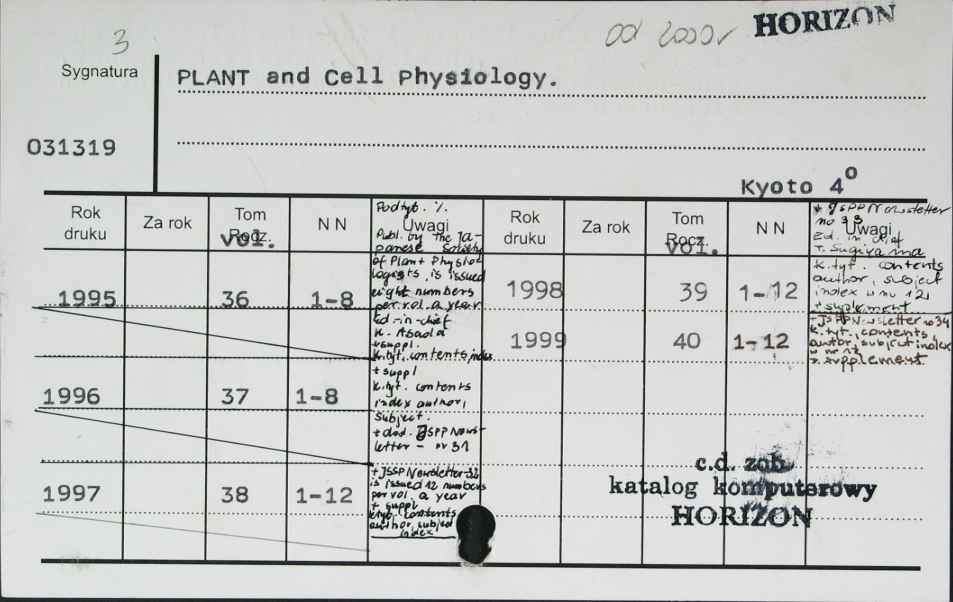 3
od 2000r
HORIZON
Sygnatura
PLANT and Cell Physiology.
031319
Kyoto 4°
Rok druku
Za rok
Tom
Rocz.
vol.
N N
Uwagi
Podtyt. %.
Publ. by the Ja-
panese Society
of Plant Physio
logists is issued
eight numbers
per vol. a year
Ed-in-chief
K. Asada
+suppl.
k.tyt. contents, index
1995 36 1-8
+ suppl
k.tyt. contents
index author,
subject.
+ dod. JSPP News-
letter - nr 31
1996 37 1-8
+ JSSP Newsletter-32
is issued 12 numbers
per vol. a year
+ suppl
k.tyt. contents
author, subject
index
1997 38 1-12
Rok druku
Za rok
Tom
Rocz.
vol.
N N
Uwagi
+ JSPP Newsletter
no 33
Ed. in chief
T. Sugiyama
k.tyt. contents
author, subject
index w nu 12
+ suplement
1998 39 1-12
+ JSPP Newsletter no 34
k.tyt., contents
autor, subject index
w nr 12
+ supplement
1999 40 1-12
c.d. zob.
katalog komputerowy
HORIZON